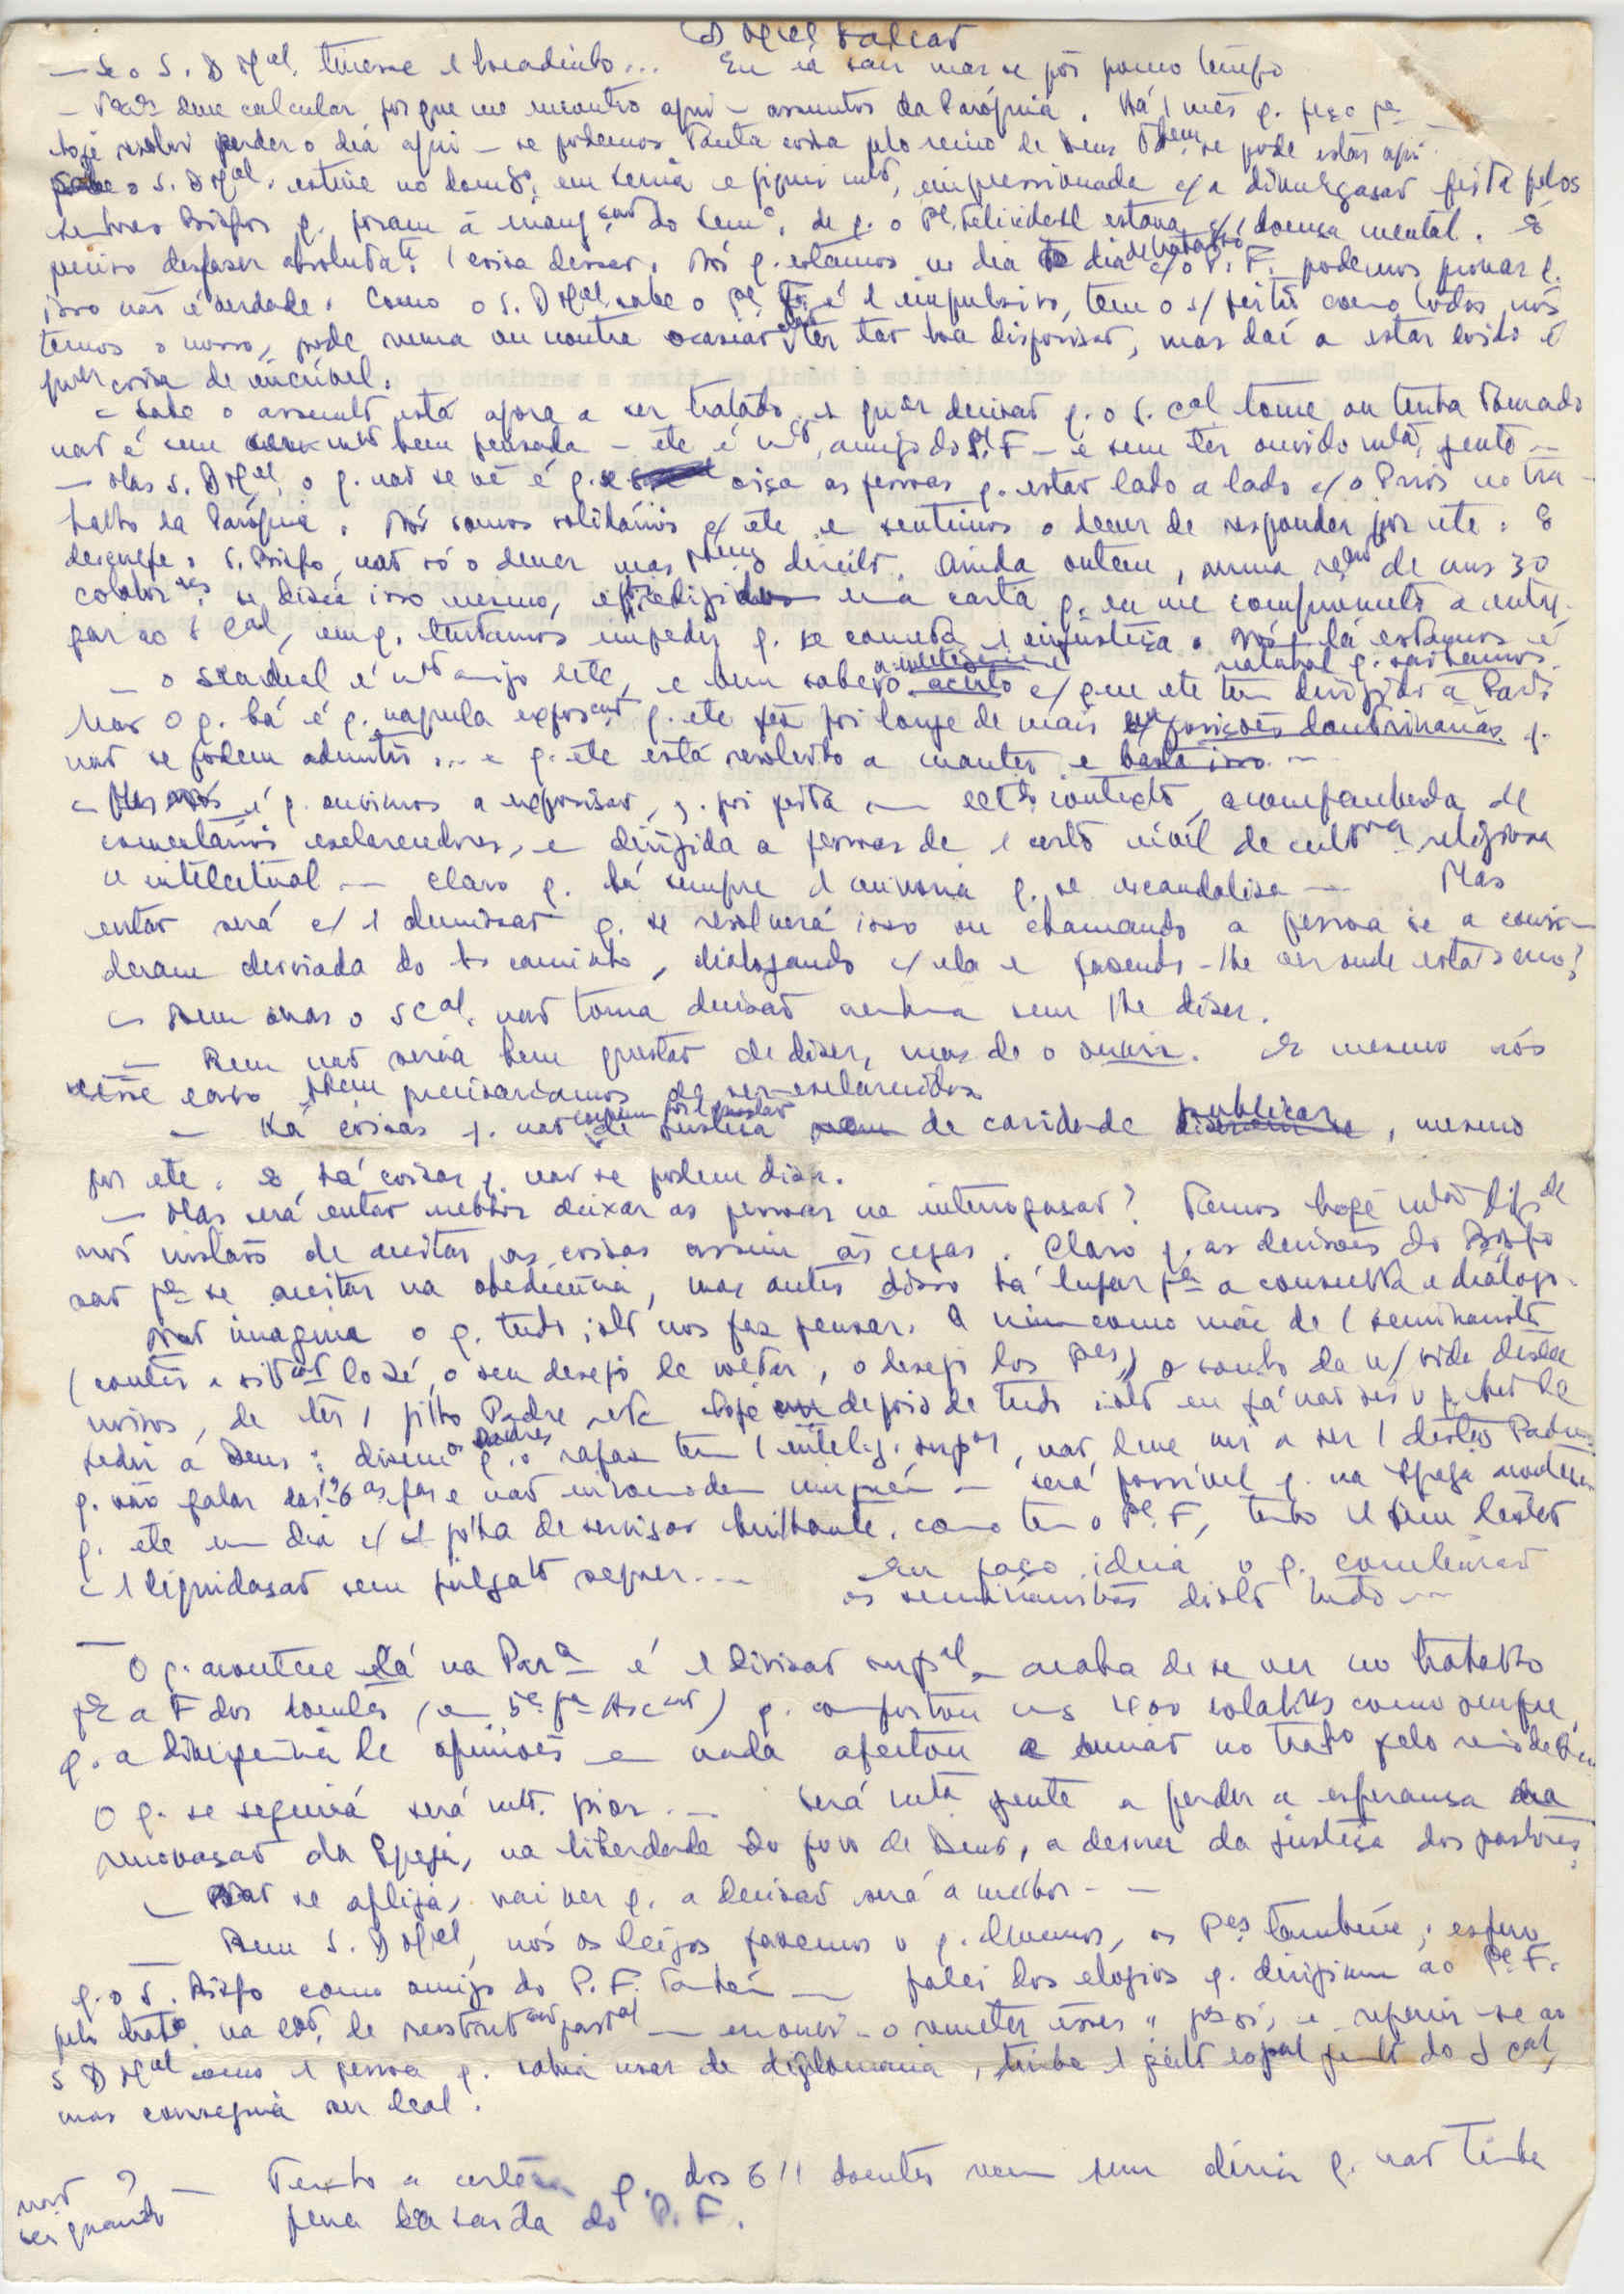 D Mel. Falcão
— Se o S. D Mel. tivesse 1 bocadinho... Eu ia sair mas se pôs pouco tempo
— deve calcular porque me encontro aqui — assuntos da Paróquia. Há 1 mês q. peço pa —
hoje resolvi perder o dia aqui — se podemos tanta coisa pelo reino de Deus tbem se pode estar aqui
o S. D Mel. estive no domgo. em e fiquei mto. impressionada c/ a divulgação feita pelos
senhores Bispos q. foram à do Sem. de q. o Pe. Felicidade estava c/ 1 doença mental. É
preciso desfazer absolutate. 1 coisa dessas. Nós q. estamos no dia a dia de trabalho c/ o P. F. podemos provar q.
isso não é verdade. Como o S. D Mel. sabe o Pe. F. é 1 impulsivo, tem o s/ feitio como todos nós
temos o nosso, pode numa ou noutra ocasião não ter tão boa disposição, mas daí a estar doido é
qqer coisa de incrível.
— Sabe o assunto está agora a ser tratado e qqer decisão q. o S. Cal tome ou tenha tomado
não é sem ser mto bem pensada — ele é mto. amigo do P. F — e sem ter ouvido mta. gente —
— Mas S. D Mel. o q. não se vê é q. se oiça as pessoas q. estão lado a lado c/ o Prior no tra-
balho da Paróquia. Nós somos solidários c/ ele e sentimos o dever de responder por ele. E
desculpe S. Bispo, não só o dever mas tbem o direito. Ainda ontem, numa reão de uns 30
colabores. se dizia isso mesmo, e redigido uma carta q. eu me comprometo a entre-
gar ao S Cal, em q. tentamos impedir q. se cometa 1 injustiça. Nós q. lá estamos é
natural q. saibamos.
— O Scardeal é mto amigo dele, e bem sabe o acerto a inteligencia c/ que ele tem dirigido a Paró.
Mas o q. há é q. naquela exposção q. ele fez foi longe de mais c/ posições doutrinárias q.
não se podem admitir... e q. ele está resolvido a manter e basta isso —
— Mas nós é q. ouvimos a exposição, q. foi feita em certo contexto, acompanhada de
comentários esclarecedores, e dirigida a pessoas de 1 certo nível de cultura religiosa
e intelectual — Claro q. há sempre 1 minoria q. se escandaliza — Mas
então será c/ 1 demissão q. se resolverá isso ou chamando a pessoa se a consi-
deram desviada do bo caminho, dialogando c/ ela e fazendo-lhe ver onde está o erro?
— Bem mas o S Cal. não toma decisão nenhuma sem lhe dizer.
— Bem não seria bem questão de dizer, mas de o ouvir. E mesmo nós
nesse caso tbem precisaríamos de ser esclarecidos
— Há coisas q. não de justiça de caridade publicar, mesmo
por ele. E há coisas q. não se podem dizer.
— Mas será então melhor deixar as pessoas na interrogação? Temos hoje mta dificdade
nós cristãos de aceitar as coisas assim às cegas. Claro q. as decisões do Bispo
são pa se aceitar na obediência, mas antes disso há lugar pa a consulta e diálogo.
Não imagina o q. tudo isto nos faz pensar. A mim como mãe de 1 seminarista
(contei a sitção do Zé, o seu desejo de voltar, o desejo dos Pes) o sonho da m/ vida desde
noivos, de ter 1 filho Padre etc hoje depois de tudo isto eu já não sei o q. hei de
pedir a Deus: dizem os Padres q. o rapaz tem 1 intelig. supor, não deve vir a ser 1 destes Padres
q. vão falar às 6as fas e não incomodam ninguém — será possível q. na Igreja moderna
q. ele um dia c/ 1 folha de serviços brilhante como tem o Pe. F, tenho 1 fim destes
— 1 liquidação sem julgato sequer... Eu faço ideia o q. comentarão
os seminaristas disto tudo —
— O q. acontece lá na Para é 1 divisão supal — acaba de se ver no trabalho
pa a F dos doentes (em 5a fa Ascção) q. comportou uns 400 colabres como sempre
q. a divergência de opiniões em nada afectou a união no trabo pelo reino de Deus
O q. se seguirá será mto. pior. — Será mta gente a perder a esperança na
renovação da Igreja, na liberdade do povo de Deus, a descrer da justiça dos pastores.
— Não se aflija, vai ver q. a decisão será a melhor - -
— Bem S. D Mel, nós os leigos fazemos o q. devemos, os Pes também; espero
q. o S. Bispo como amigo do P. F. também — falei dos elogios q. dirigiram ao Pe. F.
pelo trabo. na de — e referir-se ao
S D Mel como 1 pessoa q. sabia usar de diplomacia, tinha 1 do S Cal,
mas conseguia ser leal.
não ? — Tenho a certeza q. dos 611 doentes nem um diria q. não tinha
sei quando pena da saída do P. F.